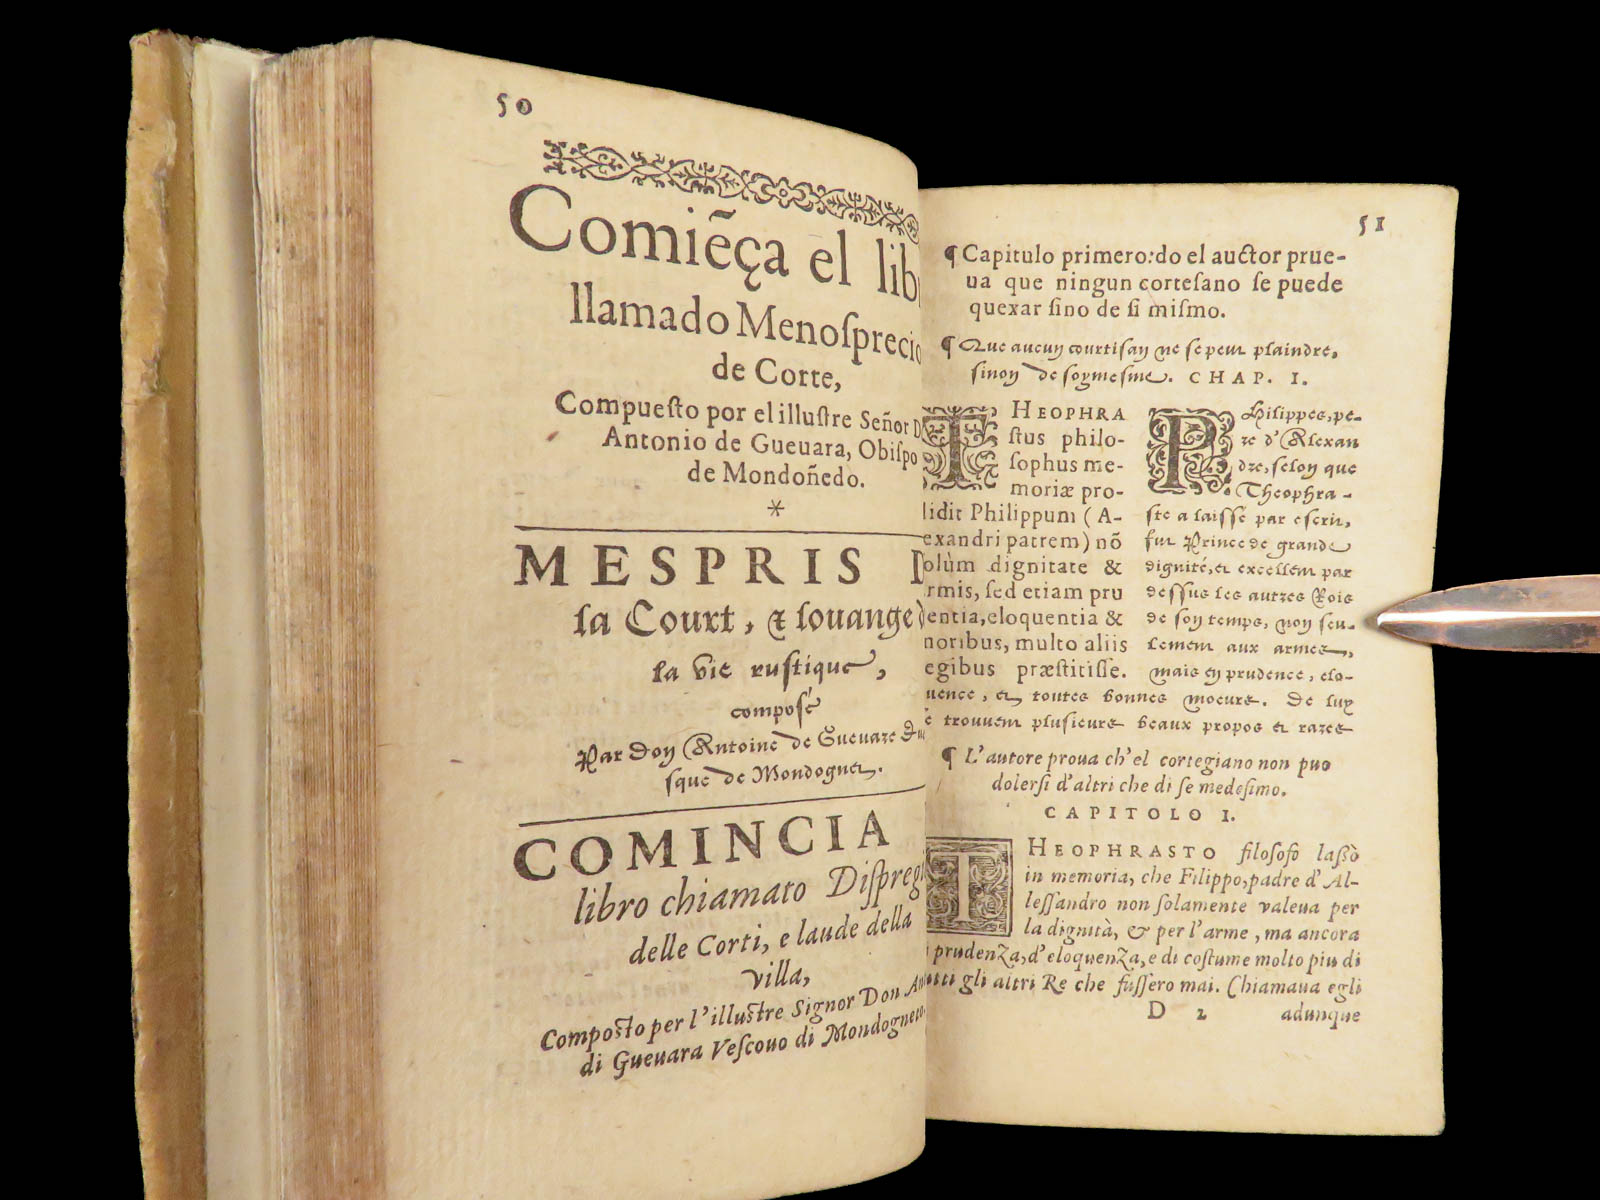 50
Comiẽça el lib
llamado Menoſprecio
de Corte,
Compueſto por el illuſtre Señor D
Antonio de Gueuara, Obiſpo
de Mondoñedo.
*
MESPRIS D
la Court, & louange d
la vie ruſtique,
compoſé
Par Don Antoine de Gueuare Eue
ſque de Mondognet.
COMINCIA
libro chiamato Diſpreg
delle Corti, e laude della
villa,
Compoſto per l'illuſtre Signor Don An
di Gueuara Veſcouo di Mondogneto.
51
¶ Capitulo primero: do el auctor prue-
ua que ningun corteſano ſe puede
quexar ſino de ſi miſmo.
¶ Que aucun courtiſan ne ſe peut plaindre,
ſinon de ſoymeſme. CHAP. I.
THEOPHRA
ſtus philo-
ſophus me-
moriæ pro-
didit Philippum (A-
exandri patrem) nõ
olùm dignitate &
rmis, ſed etiam pru
entia, eloquentia &
moribus, multo aliis
egibus præſtitiſſe.
PHilippes, pe-
re d'Alexan
dre, ſelon que
Theophra-
ſte a laiſſé par eſcrit,
fut Prince de grande
dignité, et excellent par
deſſus les autres Rois
de ſon temps, non ſeu-
lement aux armes,
mais en prudence, elo-
uence, et toutes bonnes moeurs. De luy
e trouuent pluſieurs beaux propos et rares
¶ L'autore proua ch'el cortegiano non puo
dolerſi d'altri che di ſe medeſimo.
CAPITOLO I.
THEOPHRASTO filoſofo laſsò
in memoria, che Filippo, padre d'Al-
leſſandro non ſolamente valeua per
la dignità, & per l'arme, ma ancora
prudenza, d'eloquenza, e di coſtume molto piu di
utti gli altri Re che fuſſero mai. Chiamaua egli
D 2 adunque